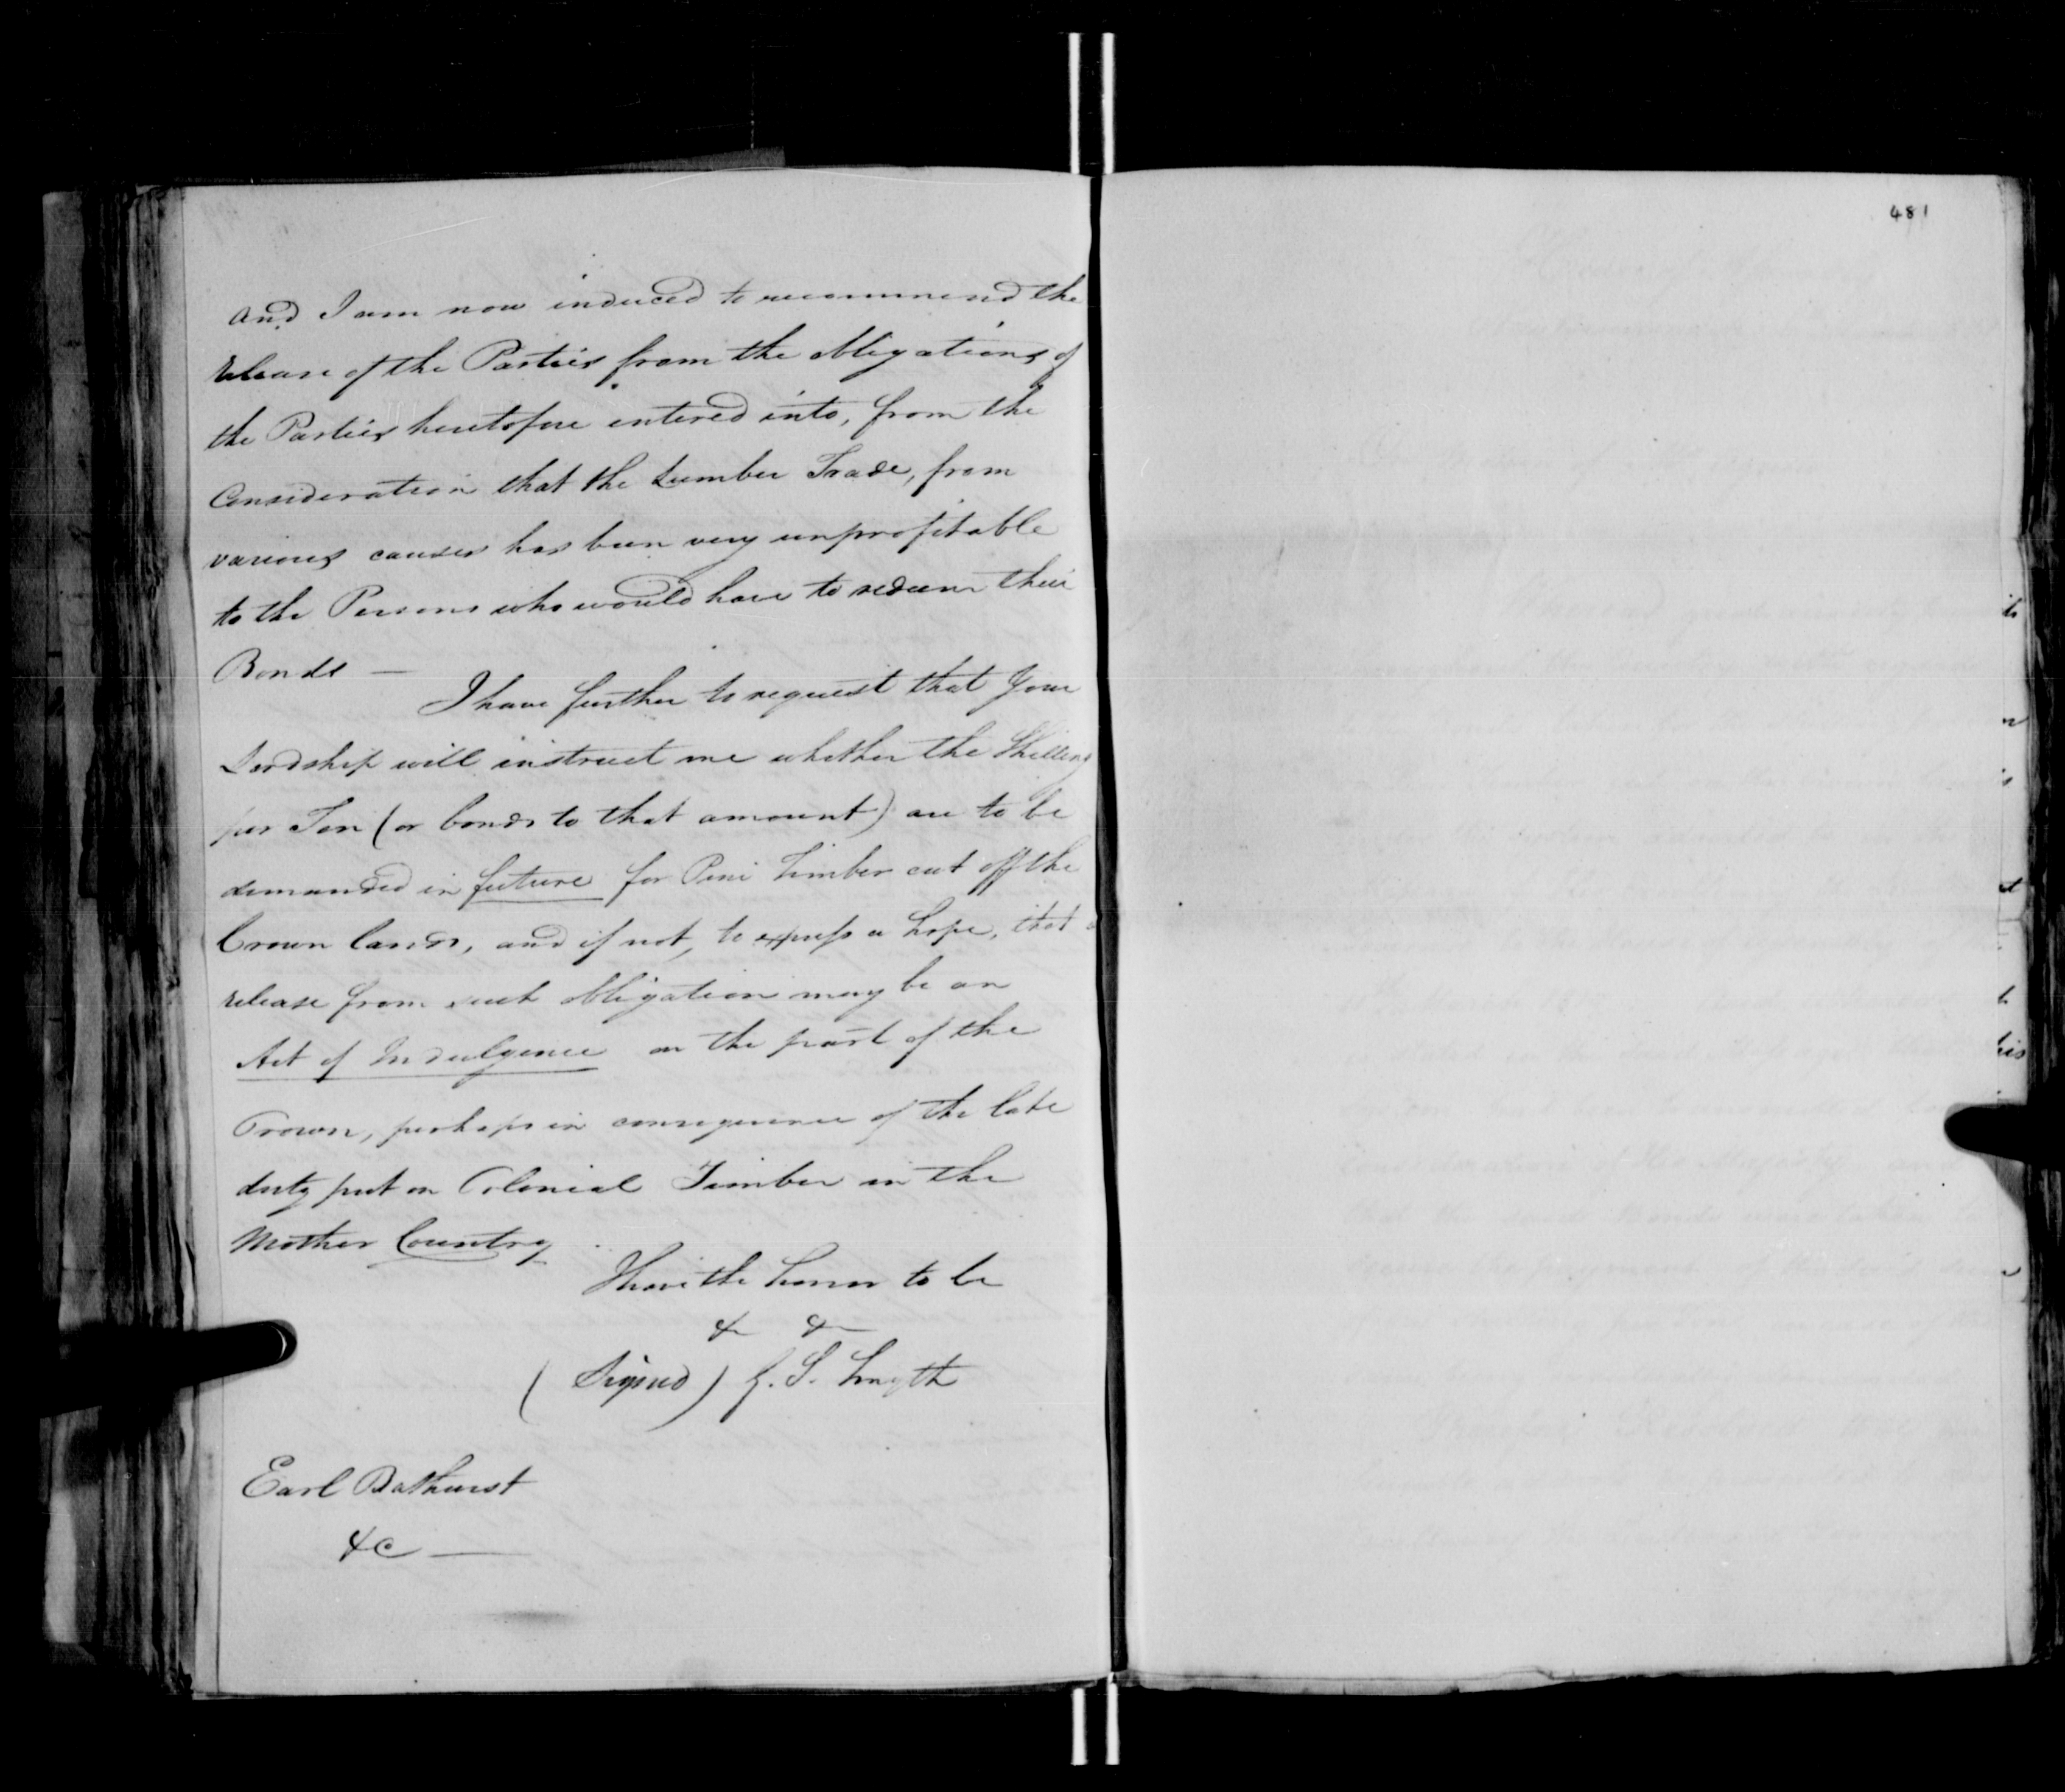 and I am now induced to recommend the
release of the Parties from the obligations of
the Parties heretofore entered into, from the
Consideration that the Lumber Trade, from
various causes has been very unprofitable
to the Persons who would have to redeem their
Bonds —
I have further to request that Your
Lordship will instruct me whether the Shilling
per Ton (or bonds to that amount) are to be
demanded in future for Pine Timber cut off the
Crown lands, and if not, to express a hope, that
release from such obligation may be an
Act of Indulgence on the part of the
Crown, perhaps in consequence of the late
duty put on Colonial Timber in the
Mother Country
I have the honor to be
& &
(Signed) G. S. Smyth
Earl Bathurst
&c —
481